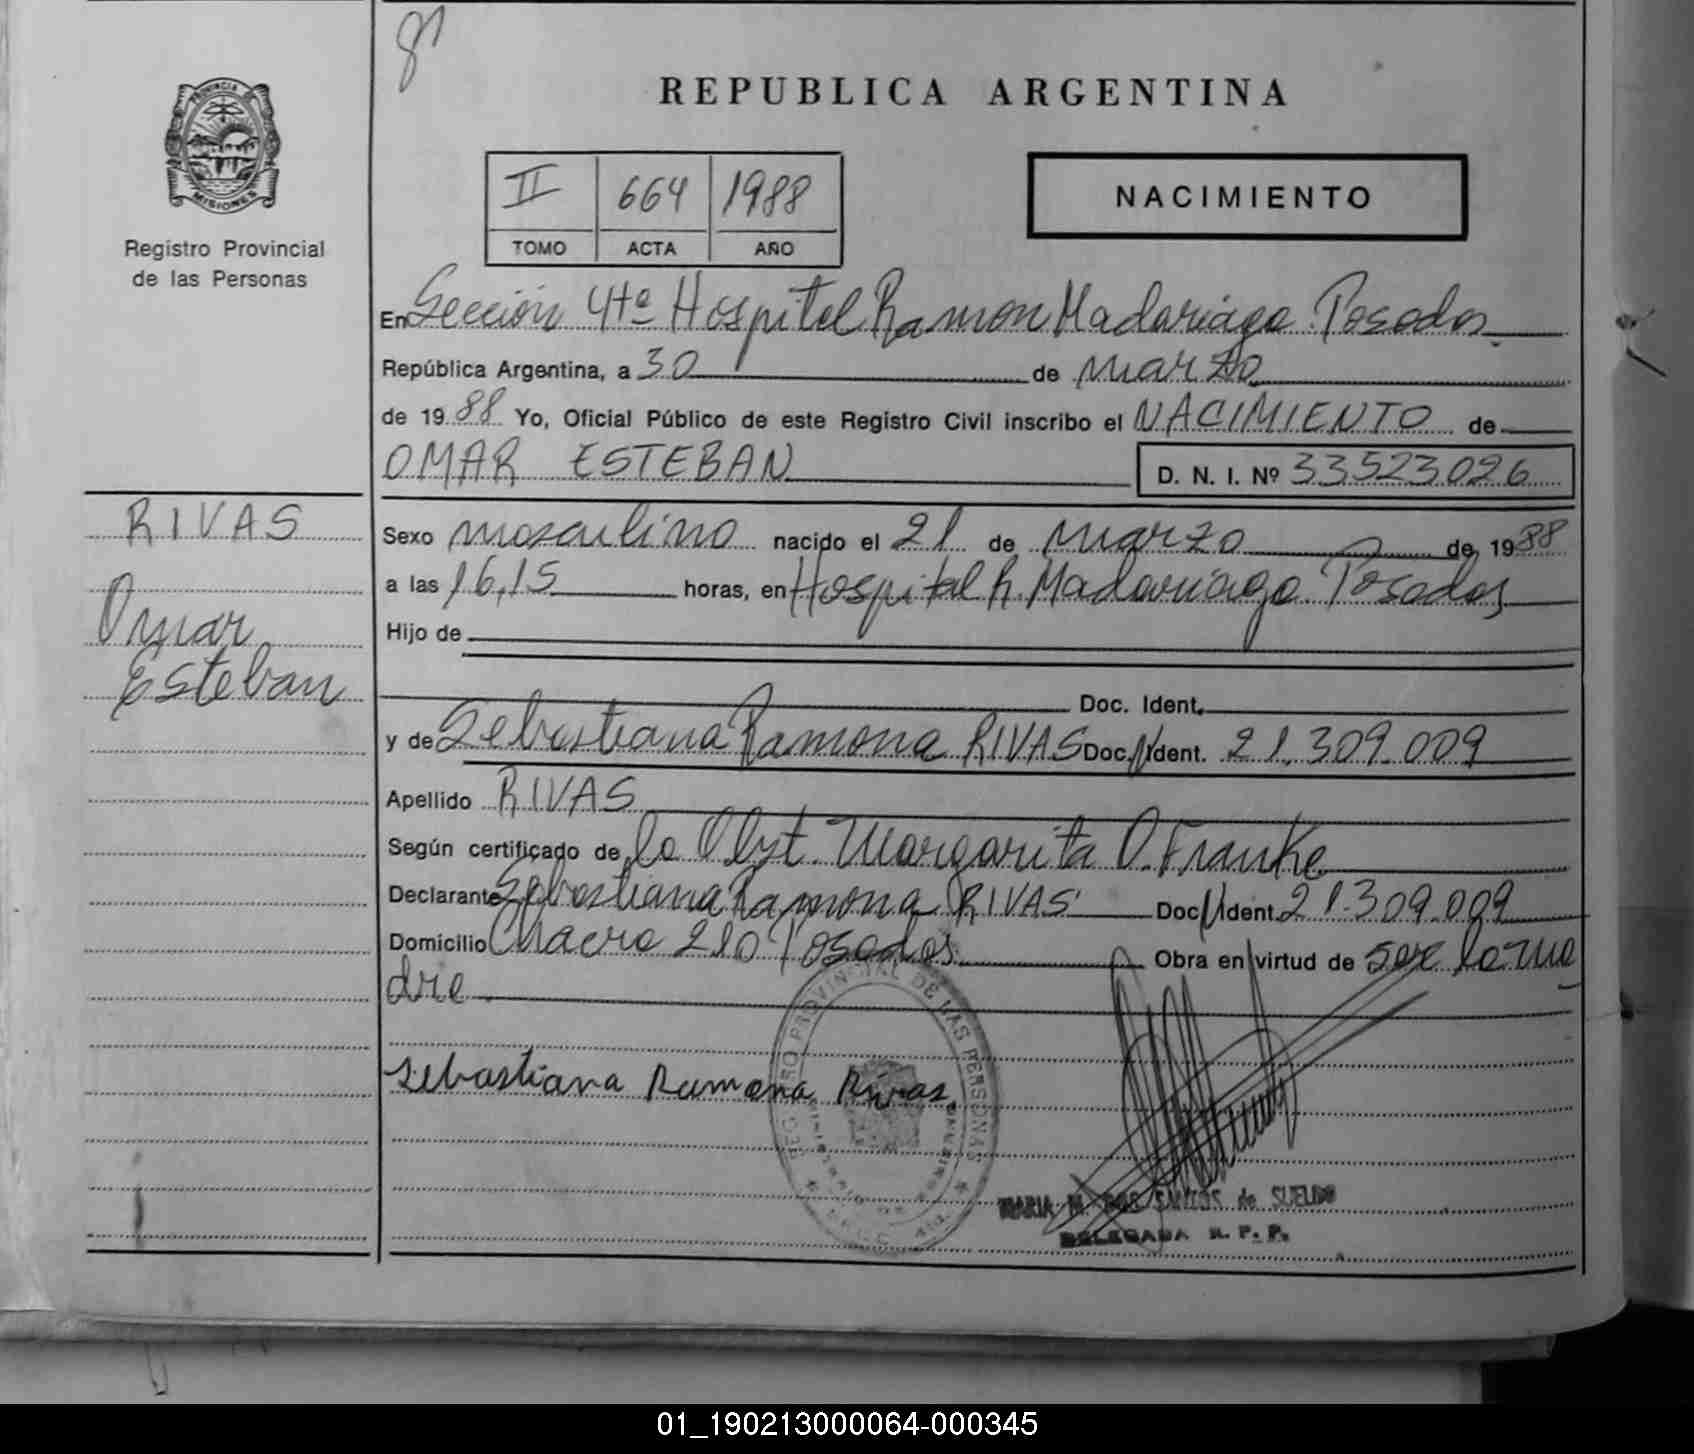 81
REPUBLICA ARGENTINA
PROVINCIA DE
MISIONES
Registro Provincial
de las Personas
II 664 1988
TOMO ACTA AÑO
NACIMIENTO
En Sección 4ta Hospital Ramon Madariaga Posadas
República Argentina, a 30 de marzo
de 1988 Yo, Oficial Público de este Registro Civil inscribo el NACIMIENTO de
OMAR ESTEBAN D. N. I. Nº 33523026
RIVAS
Omar
Esteban
Sexo masculino nacido el 21 de marzo de 1988
a las 16,15 horas, en Hospital R. Madariaga Posadas
Hijo de
Doc. Ident.
y de Sebastiana Ramona RIVAS Doc. Ident. 21.309.009
Apellido RIVAS
Según certificado de la Obst. Margarita O. Franke
Declarante Sebastiana Ramona RIVAS Doc. Ident 21.309.009
Domicilio Chacra 210 Posadas Obra en virtud de ser la ma
dre
Sebastiana Ramona Rivas
REGISTRO PROVINCIAL DE LAS PERSONAS
MARIA M. DOS SANTOS de SUELDO
DELEGADA R. P. P.
01_190213000064-000345